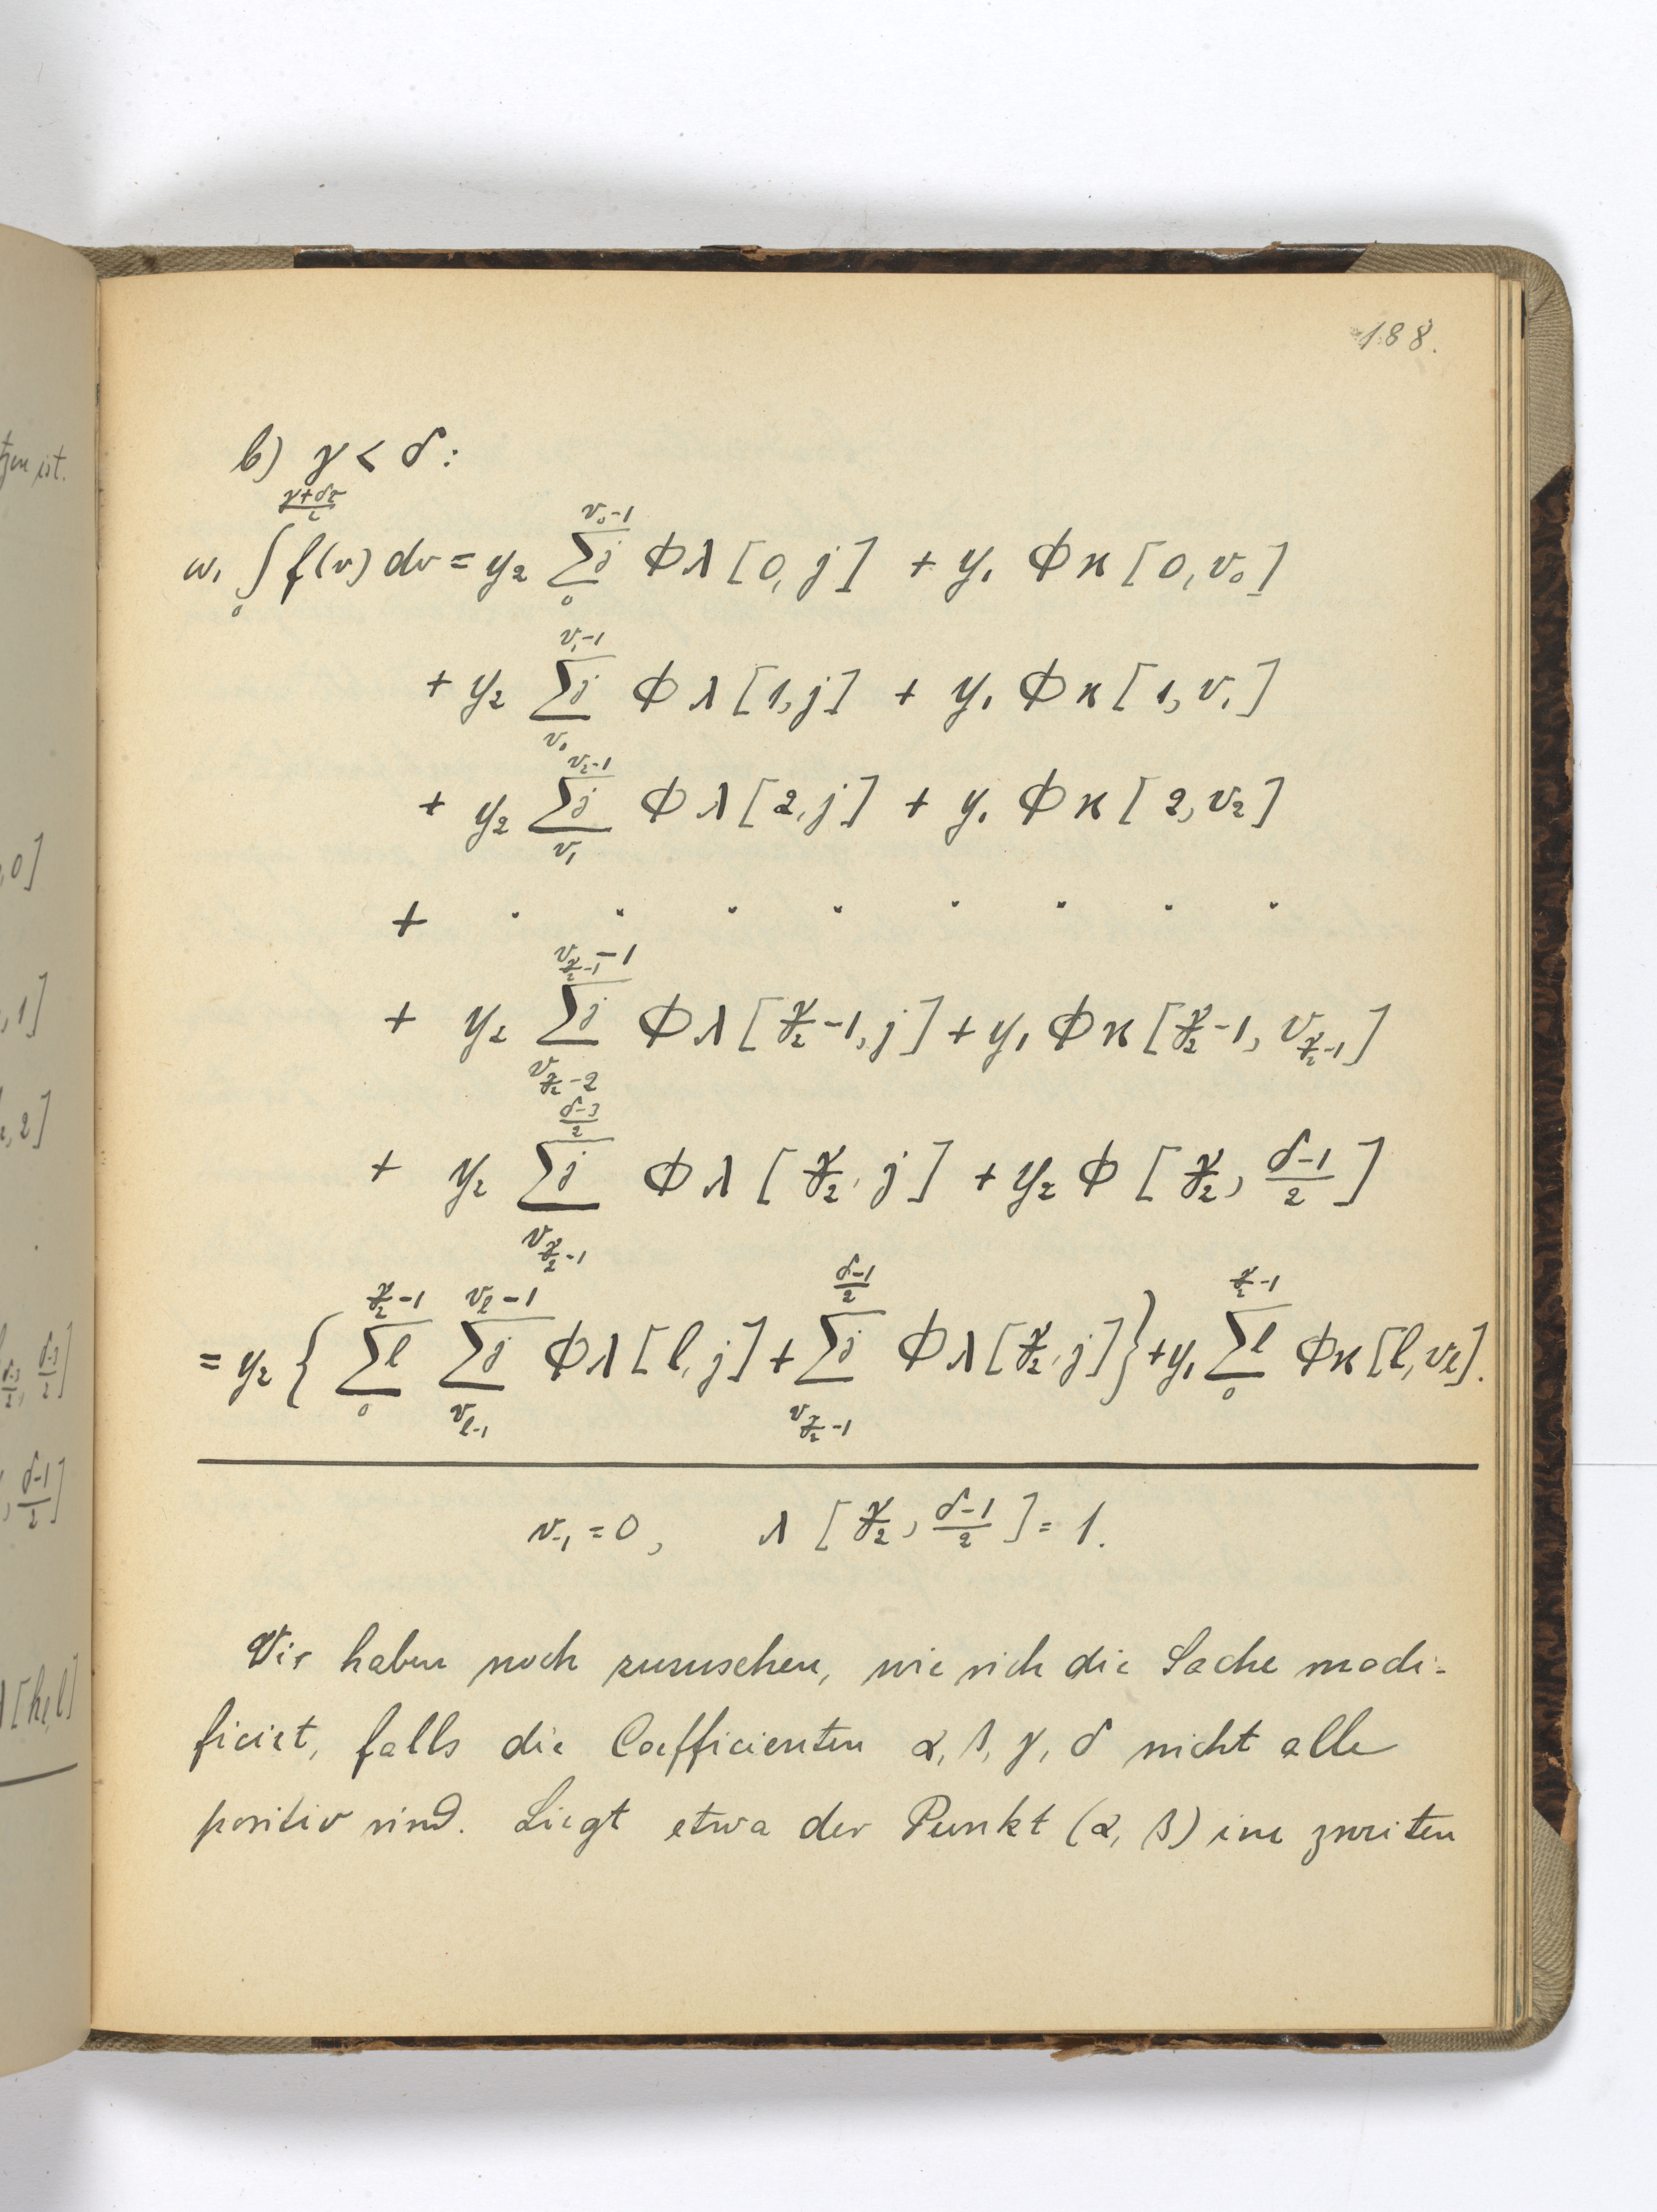 188.
b) γ < δ:
ω₁ ∫₀^{(γ+δτ)/2} f(v) dv = y₂ Σj₀^{ν₀-1} Φλ[0, j] + y₁ Φϰ[0, ν₀]
+ y₂ Σj_{ν₀}^{ν₁-1} Φλ[1, j] + y₁ Φϰ[1, ν₁]
+ y₂ Σj_{ν₁}^{ν₂-1} Φλ[2, j] + y₁ Φϰ[2, ν₂]
+ . . . . . . . .
+ y₂ Σj_{ν_{γ/2-2}}^{ν_{γ/2-1}-1} Φλ[γ/2-1, j] + y₁ Φϰ[γ/2-1, ν_{γ/2-1}]
+ y₂ Σj_{ν_{γ/2-1}}^{(δ-3)/2} Φλ[γ/2, j] + y₂ Φ[γ/2, (δ-1)/2]
= y₂ { Σl₀^{γ/2-1} Σj_{ν_{l-1}}^{ν_l-1} Φλ[l, j] + Σj_{ν_{γ/2-1}}^{(δ-1)/2} Φλ[γ/2, j] } + y₁ Σl₀^{γ/2-1} Φϰ[l, ν_l].
ν₋₁ = 0, λ[γ/2, (δ-1)/2] = 1.
Wir haben noch zuzusehen, wie sich die Sache modi-
ficiert, falls die Coefficienten α, β, γ, δ nicht alle
positiv sind. Liegt etwa der Punkt (α, β) im zweiten
tzen ist.
,0]
,1]
,2]
(δ-3)/2]
, (δ-1)/2]
λ[h, l]